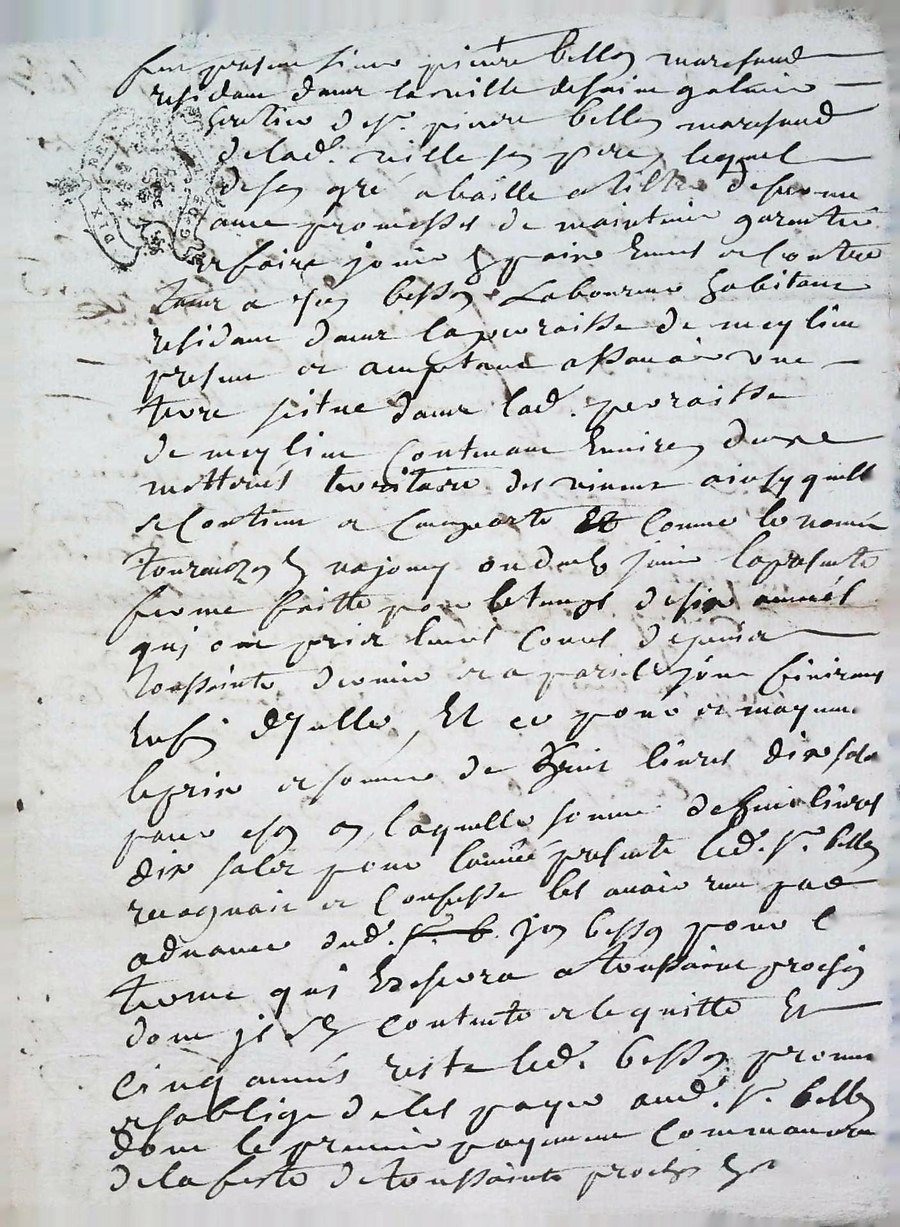 fut present sieur pierre bellon marchand
residant dans la ville de saint galmier
heritier de sr. pierre bellon marchand
de lad. ville son pere lequel
de son gré a baille a tiltre de ferme
avec promesses de maintenir garentir
et faire jouir et contre
tous a jean besson laboureur habitant
residant dans la parroisse de meylieu
present et acceptant assavoir une
terre scitue dans lad. parroisse
de meylieu contenant environ deux
metterés territoire des ainsy quelle
se contient et comporte et comme le nommé
jouir la presente
ferme faitte pour le temps de six années
qui ont pris leurs cours depuis
toussaints dernier et a pareil jour finiront
Et ce pour et moyenant
le prix et somme de huit livres dix sols
pour laquelle somme de huit livres
dix sols pour l'année presente led. sr. bellon
recognoit et confesse les avoir receu par
advance dud. jean besson pour le
terme qui a toussaint prochain
dont content et le quitte Et
cinq années reste led. besson promet
et s'oblige de les payer aud. sr. bellon
dont le premier payement commancera
de la feste de toussaints prochain
DIX